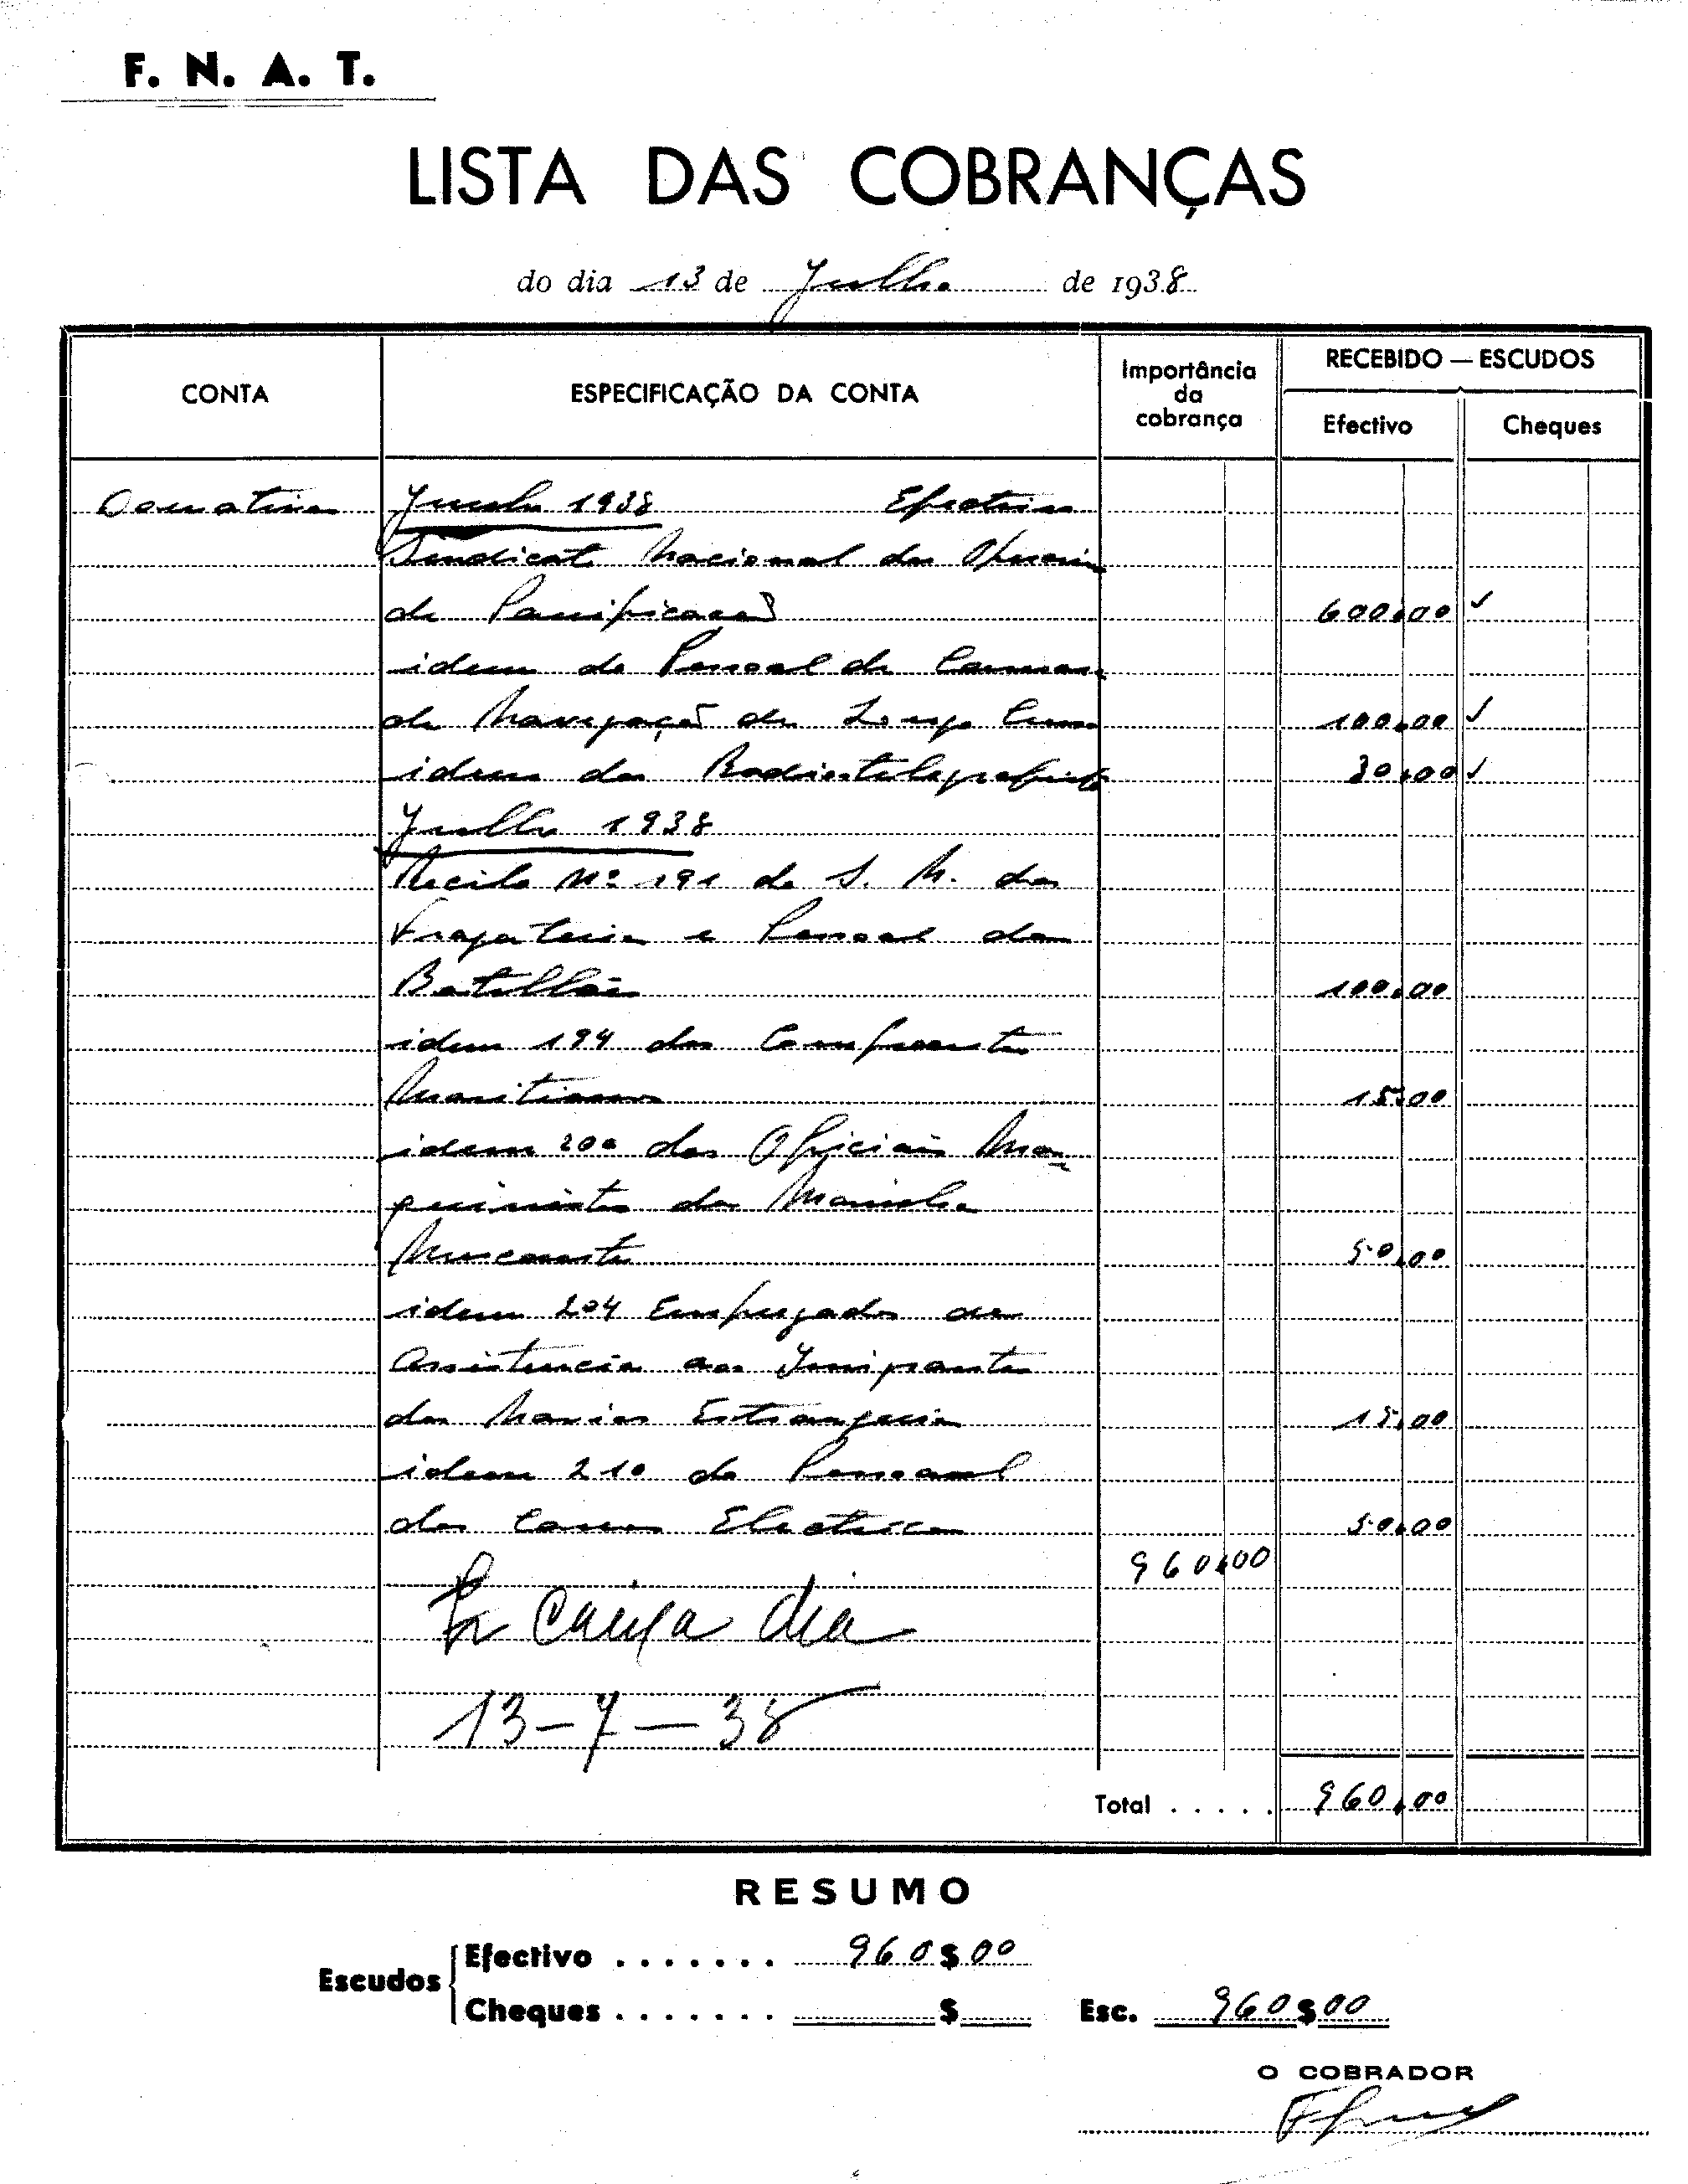 F. N. A. T.
LISTA DAS COBRANÇAS
do dia 13 de Julho de 1938
CONTA
ESPECIFICAÇÃO DA CONTA
Importância da cobrança
RECEBIDO — ESCUDOS
Efectivo
Cheques
Donativos Junho 1938 Efectivos
Sindicato Nacional dos Operarios
de Panificação 600,00 ✓
idem do Pessoal de Camaras
de Navegação de Longo Curso 100,00 ✓
idem dos Radiotelegrafistas 30,00 ✓
Julho 1938
Recibo Nº 191 do S. N. dos
Fragateiros e Pessoal das
Batelões 100,00
idem 194 dos
Maritimos 15,00
idem 200 dos Oficiais Ma-
quinistas da Marinha
Mercante 50,00
idem 204 Empregados de
Assistencia aos
dos Navios Estrangeiros 15,00
idem 210 do Pessoal
dos Carros Electricos 50,00
960,00
Caixa dia
13-7-38
Total ..... 960,00
RESUMO
Escudos
Efectivo ....... 960$00
Cheques ....... $
Esc. 960$00
O COBRADOR